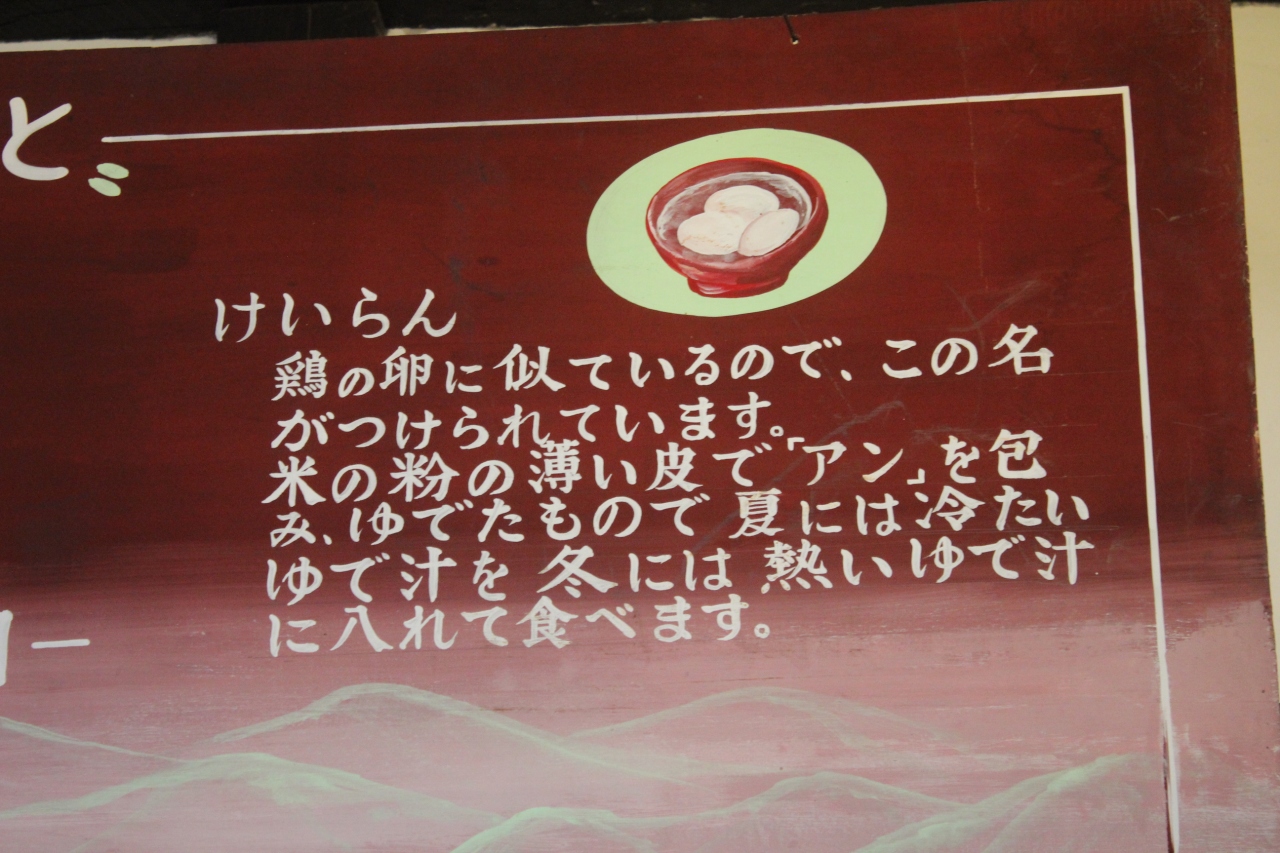 ど
けいらん
鶏の卵に似ているので、この名
がつけられています。
米の粉の薄い皮で「アン」を包
み、ゆでたもので夏には冷たい
ゆで汁を冬には熱いゆで汁
に入れて食べます。